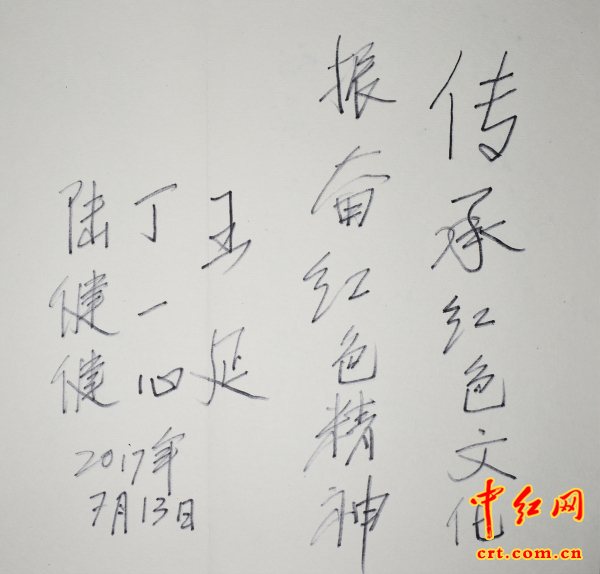 传承红色文化
振奋红色精神
王延
丁一心
陆健健
2017年
7月13日
中红网
crt.com.cn